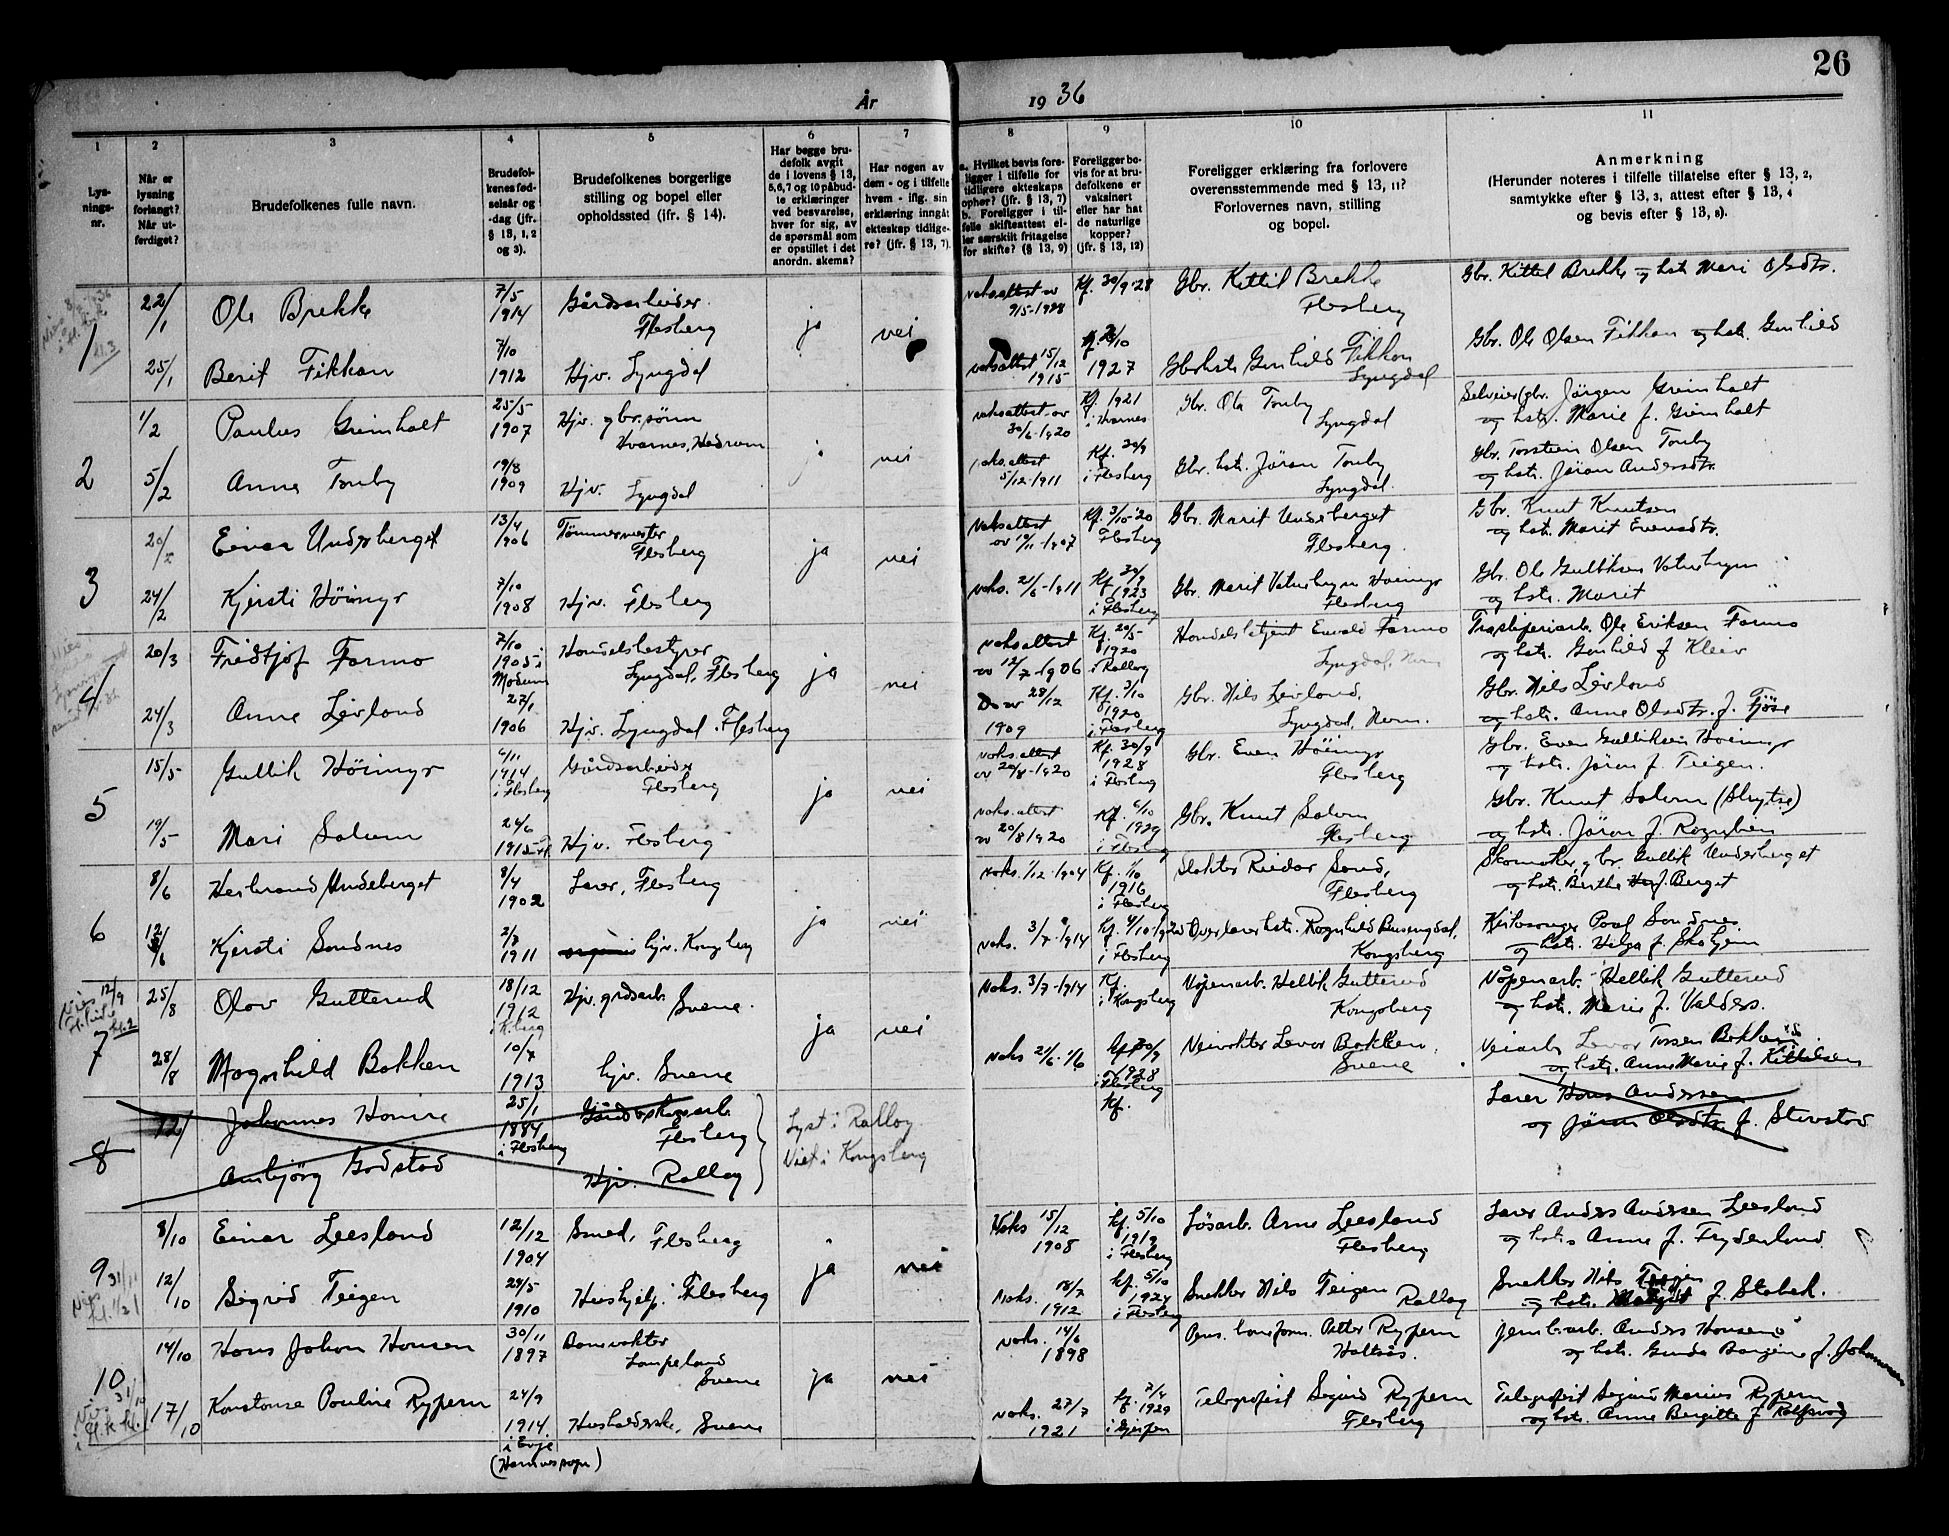 26
År 1936
1 2 3 4 5 6 7 8 9 10 11
Lys-
nings-
nr.
Når er
lysning
forlangt?
Når ut-
ferdiget?
Brudefolkenes fulle navn.
Brudefol-
kenes fød-
selsår og
-dag (jfr.
§ 13, 1, 2
og 3).
Brudefolkenes borgerlige
stilling og bopel eller
opholdssted (jfr. § 14).
Har begge bru-
defolk avgit
de i lovens § 13,
5,6,7 og 10 påbud-
te erklæringer
ved besvarelse,
hver for sig, av
de spørsmål som
er opstillet i det
anordn. skema?
Har nogen av
dem - og i tilfelle
hvem - iflg. sin
erklæring inngått
ekteskap tidlige-
re? (jfr. § 13, 7).
a. Hvilket bevis fore-
ligger i tilfelle for
tidligere ekteskaps
ophør? (jfr. § 13, 7)
b. Foreligger i til-
felle skifteattest el-
ler særskilt fritagelse
for skifte? (§ 13, 9)
Foreligger be-
vis for at bru-
defolkene er
vaksinert
eller har hat
de naturlige
kopper?
(jfr. § 13, 12)
Foreligger erklæring fra forlovere
overensstemmende med § 13, 11?
Forlovernes navn, stilling
og bopel.
Anmerkning
(Herunder noteres i tilfelle tillatelse efter § 13, 2,
samtykke efter § 13, 3, attest efter § 13, 4
og bevis efter § 13, 8).
1
22/1 Ole Brekke 7/5 1914 Gårdsarbeider Flesberg ja nei
vaksattest av 9/5-1928 Kf. 30/9-28 Gbr. Kittil Brekke Flesberg Gbr. Kittil Brekke og hstr. Mari Olsdtr.
25/1 Berit Fikkan 7/10 1912 Hjv. Lyngdal
vaksattest 15/12 1915 1927 Gbrhstr. Gunhild Fikkan Lyngdal Gbr. Ole Olsen Fikkan og hstr. Gunhild
2
1/2 Paulus Grimholt 25/5 1907 Hjv. gbr.sønn Hvarnes, Hedrum ja nei
vaksattest av 30/6-1920 Kf. 1921 i Hvarnes Gbr. Ole Tonby Lyngdal Selveier gbr. Jörgen Grimholt og hstr. Marie f. Grimholt
5/2 Anne Tonby 19/8 1909 Hjv. Lyngdal
vaks.attest 5/12-1911 Kf. i Flesberg Gbr. hstr. Jöran Tonby Lyngdal Gbr. Torstein Olsen Tonby og hstr. Jöran Andersdtr.
3
20/2 Einar Underberget 13/4 1906 Tömmermester Flesberg ja nei
vaksattest av 10/11-1907 Kf. 3/10-20 Flesberg Gbr. Marit Underberget Flesberg. Gbr. Knut Knutsen og hstr. Marit Evensdtr.
24/2 Kjersti Höimyr 7/10 1908 Hjv. Flesberg
vaks. 21/6-1911 Kf. 1923 i Flesberg Gbr. Marit Höimyr Flesberg Gbr. Ole og hstr. Marit
4
20/3 Fridtjof Formo 7/10 1905 i Modum Handelsbestyrer Lyngdal, Flesberg ja nei
vaksattest av 12/7-1906 Kf. 20/5-1920 i Rollag Handelsbetjent Formo Lyngdal, Ole Eriksen Formo og hstr. Gunhild f. Kleiv
24/3 Anne Leivland 27/1 1906 Hjv. Lyngdal Flesberg
Do av 28/12 1909 Kf. 3/10 1920 i Flesberg Gbr. Nils Leivland, Lyngdal, Num. Gbr. Nils Leivland og hstr. Anne Olsdtr. f. Fjöse
5
15/5 Gullik Höimyr 6/11 1914 i Flesberg Gårdsarbeider Flesberg ja nei
vaksattest av 20/8-1920 Kf. 30/9 1928 i Flesberg Gbr. Even Höimyr Flesberg Gbr. Even Gulliksen Höimyr og hstr. Jöran f. Teigen.
19/5 Mari Solum 24/6 1915 Hjv. Flesberg
vaks.attest av 20/8 1920 Kf. 6/10 1929 i Flesberg Gbr. Knut Solum Flesberg Gbr. Knut Solum og hstr. Jöran f.
6
8/6 Herbrand Underberget 8/4 1902 Laver, Flesberg ja nei
vaks. 1/12-1904 Kf. 1/10 1916 i Flesberg Slakter Reidar Sand, Flesberg Skomaker gbr. Gullik Underberget og hstr. Berthe f. Berget
12/6 Kjersti Sandnes 2/8 1911 hjv. Kongsberg
vaks. 3/7-1914 Kf. i Flesberg Ragnhild Kongsberg Kirkesanger Sandnes og hstr. Helga f.
7
25/8 Olav Gutterud 18/12 1912 i K.berg Hjv. grdsarb. Svene. ja nei
vaks. 3/7-1914 Kf. i Kongsberg Våpenarb. Hellik Gutterud Kongsberg Våpenarb. Hellik Gutterud og hstr. Marie f. Valders.
28/8 Magnhild Bakken 10/7 1913 hjv. Svene
vaks 2/6- 1/6 1928 i Flesberg Veivokter Levor Bakken, Svene Veiarb. Levor Torsen Bakken og hstr. Anne Marie f. Kittilsen
8
12/ Johannes 25/1 1884 i Flesberg Flesberg Lyst i Rollag
Kf. Laver Hans Andersen og Jöran Olsdtr. f.
Anbjörg Godstad Hjv. Rollag Viet i Kongsberg
9
8/10 Einar Leesland 12/12 1904 Smed, Flesberg ja nei
Vaks 15/12 1908 Kf. 5/10 1919 i Flesberg Lösarb. Arne Leesland Flesberg Laver Anders Andersen Leesland og hstr. Anne f. Frydenlund
12/10 Sigrid Teigen 29/5 1910 Hushjelp. Flesberg
Vaks. 18/7 1912 Kf. 5/10 1924 i Flesberg Snekker Nils Teigen Rollag Snekker Nils Teigen og hstr. Margit f. Stabek.
10
14/10 Hans Johan Hansen 30/11 1897 Damvokter Lampeland Svene ja nei
vaks. 14/6 1898 Pens. Petter Rypern Jernb.arb. Anders Hansen og hstr. Gunda f. Johannesen
17/10 Konstanse Pauline Rypern 24/9 1914. i Evje (Hornnes sogn) Husholderske, Svene
vaks. 27/7 1921 Kf. 7/4 1929 i Gjerpen Telegrafist Sigurd Rypern Flesberg Telegrafist Sigurd Marius Rypern og hstr. Anne Bergitte f.